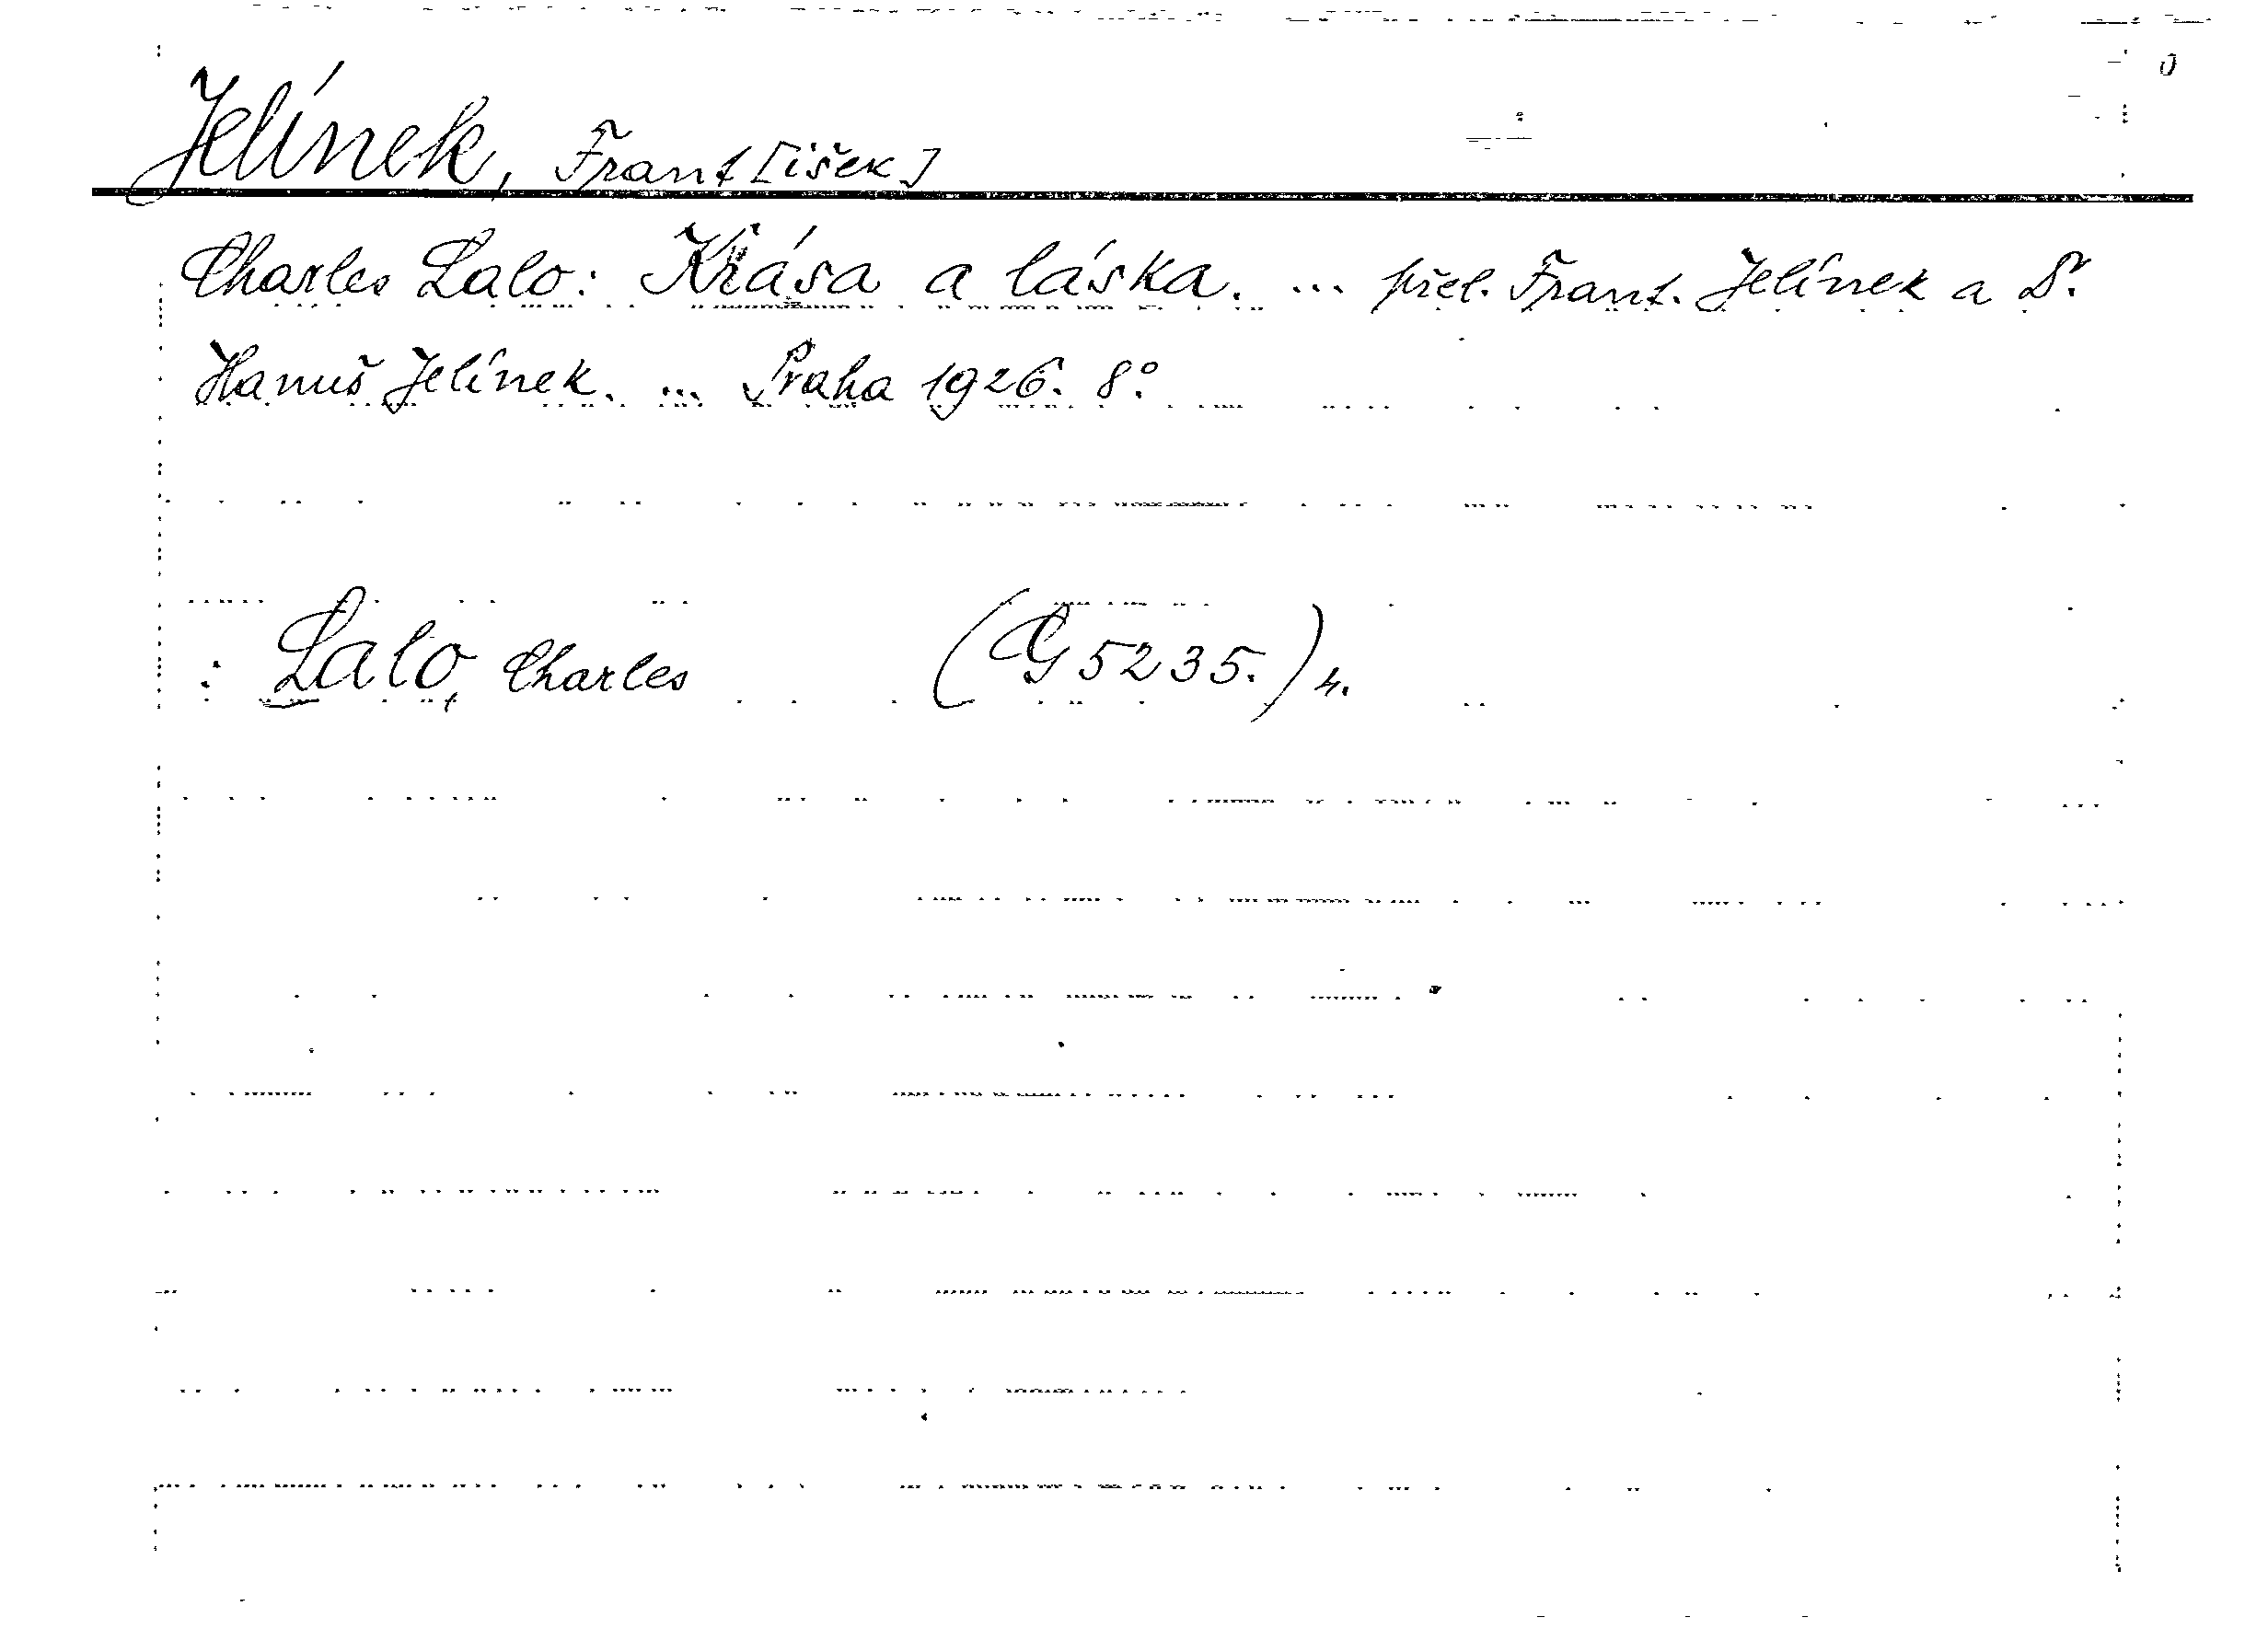 Jelínek, Frant[išek]
Charles Lalo: Krása a láska. ... přel. Frant. Jelínek a Dr.
Hanuš Jelínek. ... Praha 1926. 8°.
: Lalo, Charles (G 5235.) н.